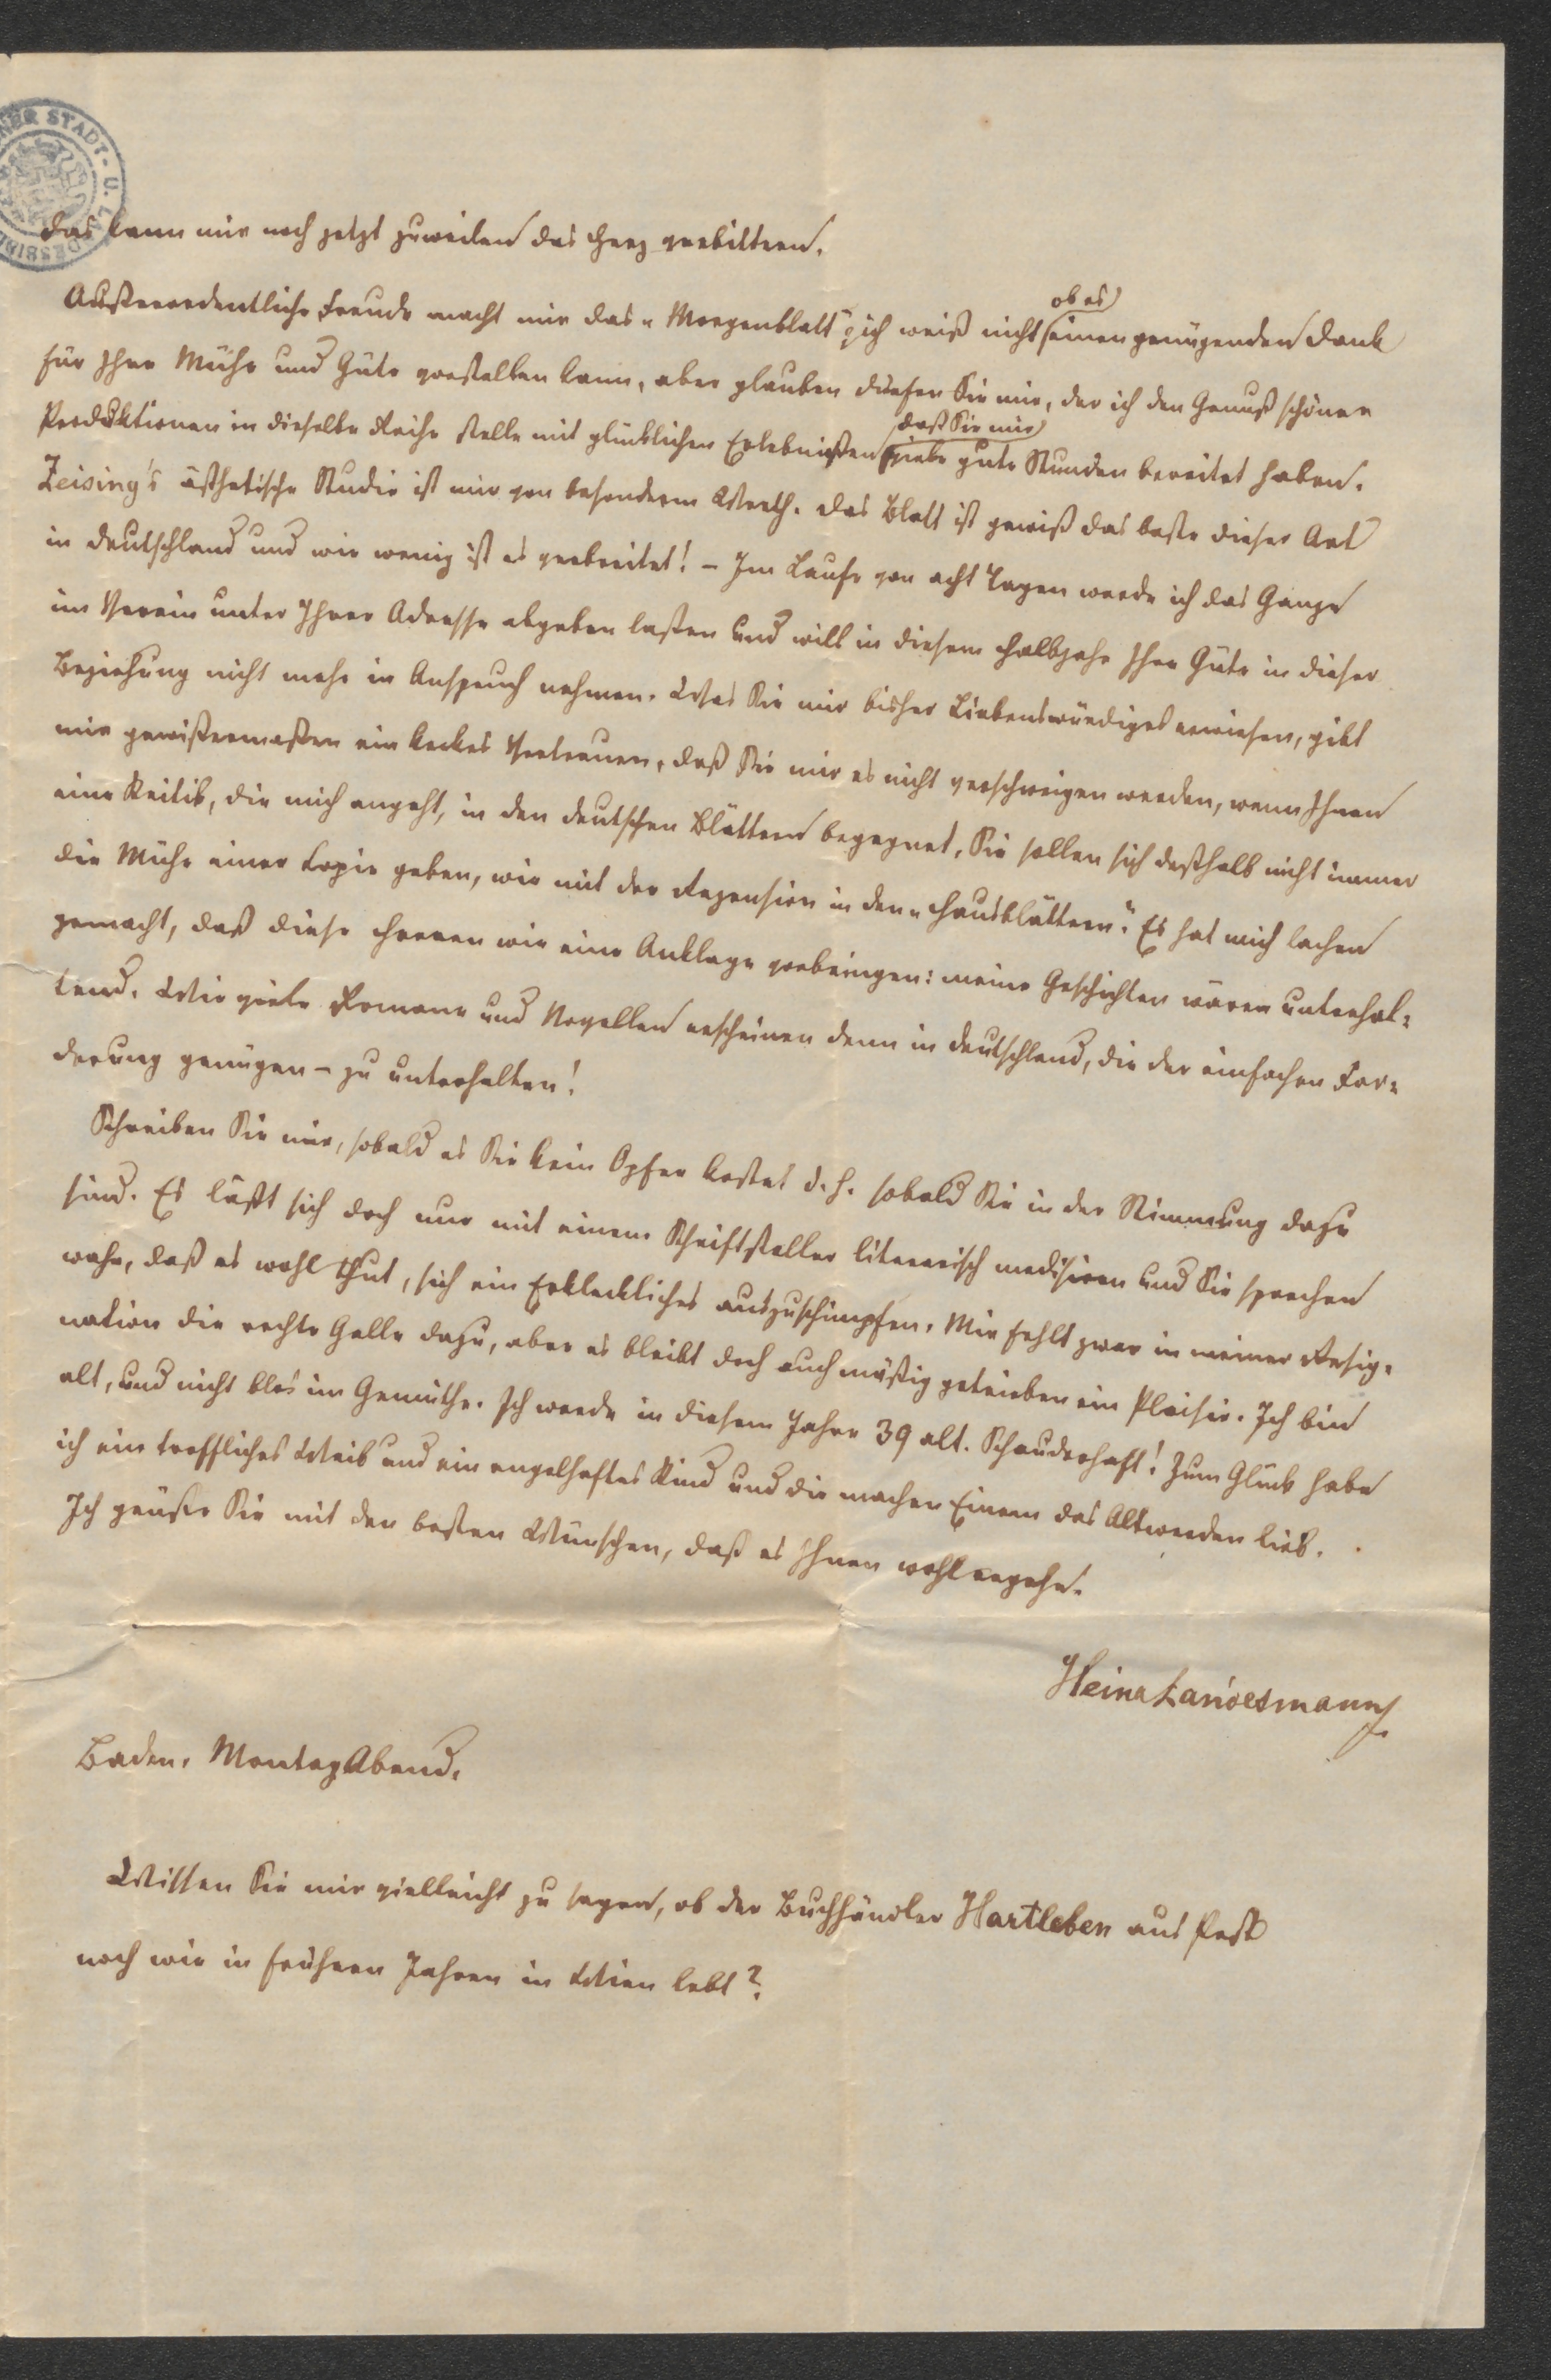 das kann mir noch jetzt zuweilen das Herz verbittern.
Außerordentliche Freude macht mir das „Morgenblatt“; ich weiß nicht ob es einen genügenden Dank
für Ihre Mühe und Güte vorstellen kann, aber glauben dürfen Sie mir, der ich den Genuß schöner
Produktionen in dieselbe Reihe stelle mit glücklichen Erlebnißen, daß Sie mir viele gute Stunden bereitet haben.
Zeising's ästhetische Studie ist mir von besonderm Werth. Das Blatt ist gewiß das beste dieser Art
in Deutschland und wie wenig ist es verbreitet! – Im Laufe von acht Tagen werde ich das Ganze
im Verein unter Ihrer Adresse abgeben laßen und will in diesem Halbjahr Ihre Güte in dieser
Beziehung nicht mehr in Anspruch nehmen. Was Sie mir bisher Liebenswürdiges erwiesen, gibt
mir gewißermaßen ein keckes Vertrauen, daß Sie mir es nicht verschweigen werden, wenn Ihnen
eine Kritik, die mich angeht, in den deutschen Blättern begegnet. Sie sollen sich deßhalb nicht immer
die Mühe einer Copie geben, wie mit der Rezension in den „Hausblättern“. Es hat mich lachen
gemacht, daß diese Herren wie eine Anklage vorbringen: meine Geschichten wären unterhal-
tend. Wie viele Romane und Novellen erscheinen denn in Deutschland, die der einfachen For-
derung genügen – zu unterhalten!
Schreiben Sie mir, sobald es Sie kein Opfer kostet d. h. sobald Sie in der Stimmung dazu
sind. Es läßt sich doch nur mit einem Schriftsteller literarisch medisiren und Sie sprechen
wahr, daß es wohl thut, sich ein Erkleckliches auszuschimpfen. Mir fehlt zwar in meiner Resig-
nation die rechte Galle dazu, aber es bleibt doch auch mäßig getrieben ein Plaisir. Ich bin
alt, und nicht blos im Gemüthe. Ich werde in diesem Jahre 39 alt. Schauderhaft! Zum Glück habe
ich ein treffliches Weib und ein engelhaftes Kind und die machen Einem das Altwerden lieb.
Ich grüße Sie mit den besten Wünschen, daß es Ihnen wohlergehe.
Heinr Landesmann
Baden. Montag Abend.
Wissen Sie mir vielleicht zu sagen, ob der Buchhändler Hartleben aus Pest
noch wie in frühern Jahren in Wien lebt?